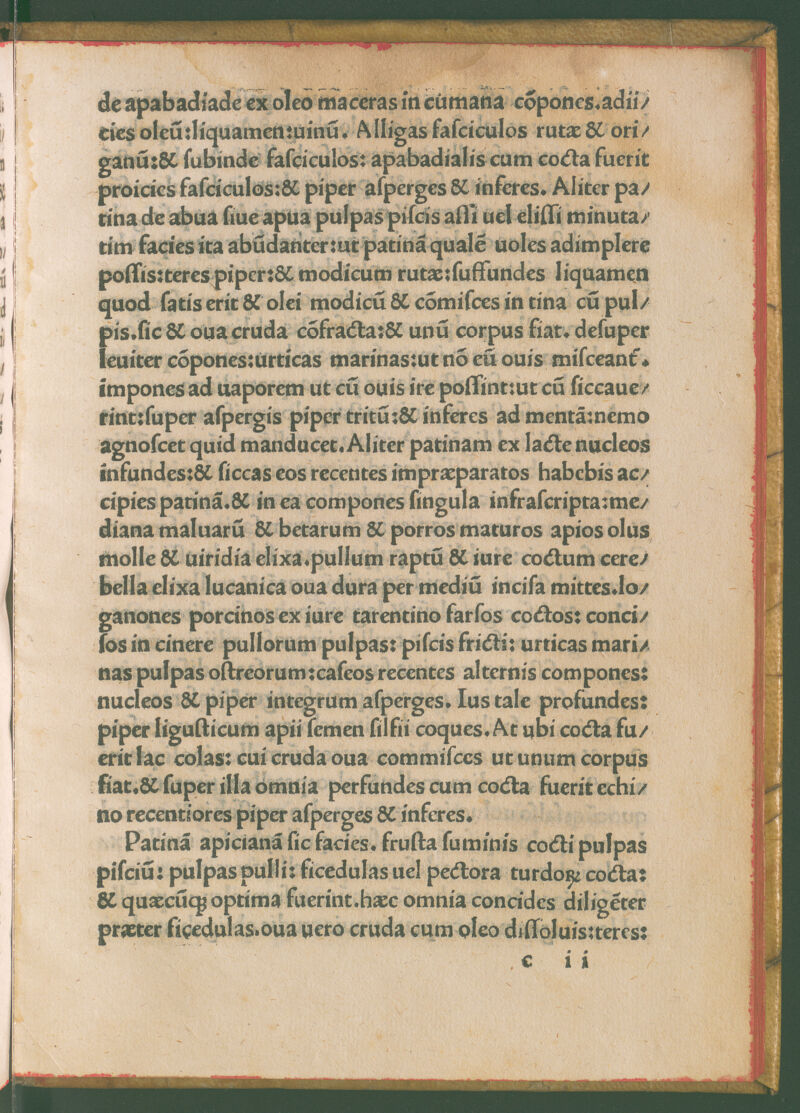 de apabadiade ex oleo maceras in cūmana cōpones.adii/
cies oleū:liquamen:uinū. Alligas fasciculos rutæ & ori/
ganū:& subinde fasciculos: apabadialis cum cocta fuerit
proicies fasciculos:& piper asperges & inferes. Aliter pa/
tina de abua siue apua pulpas piscis assi uel elissi minuta/
tim facies ita abūdanter:ut patinā qualē uoles adimplere
possis:teres piper:& modicum rutæ:suffundes liquamen
quod satis erit & olei modicū & cōmisces in tina cū pul/
pis.sic & oua cruda cōfracta:& unū corpus fiat. desuper
leuiter cōpones:urticas marinas:ut nō cū ouis misceant̄.
impones ad uaporem ut cū ouis ire possint:ut cū siccaue/
rint:super aspergis piper tritū:& inferes ad mentā:nemo
agnoscet quid manducet. Aliter patinam ex lacte nucleos
infundes:& siccas eos recentes impræparatos habebis ac/
cipies patinā.& in ea compones singula infrascripta:me/
diana maluarū & betarum & porros maturos apios olus
molle & uiridia elixa.pullum raptū & iure coctum cere/
bella elixa lucanica oua dura per mediū incisa mittes.lo/
ganones porcinos ex iure tarentino farsos coctos: conci/
sos in cinere pullorum pulpas: piscis fricti: urticas mari/
nas pulpas ostreorum:caseos recentes alternis compones:
nucleos & piper integrum asperges. Ius tale profundes:
piper ligusticum apii semen silfii coques. At ubi cocta fu/
erit lac colas: cui cruda oua commisces ut unum corpus
fiat.& super illa omnia perfundes cum cocta fuerit echi/
no recentiores piper asperges & inferes.
Patinā apicianā sic facies. frusta suminis cocti pulpas
pisciū: pulpas pulli: ficedulas uel pectora turdoꝝ cocta:
& quæcūꝗ optima fuerint.hæc omnia concides diligēter
præter ficedulas.oua uero cruda cum oleo dissoluis:teres:
c ii